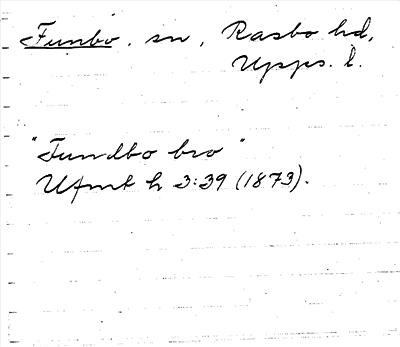 Funbo. sn, Rasbo hd,
Upps. l.
"Fundbo bro"
Ufmt h 3:39 (1873).